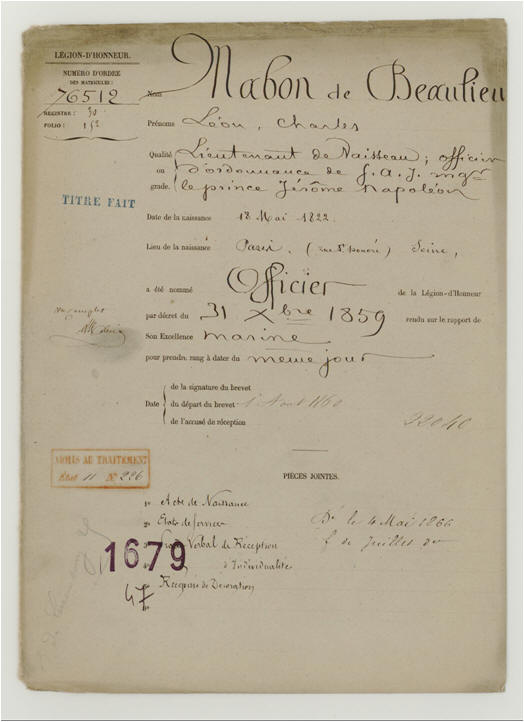 LÉGION-D'HONNEUR.
NUMÉRO D'ORDRE
DES MATRICULES:
76512
REGISTRE: 30
FOLIO: 152
TITRE FAIT
Nom Mabon de Beaulieu
Prénoms Léon, Charles
Qualité ou grade. Lieutenant de Vaisseau; officier
d'ordonnance de S. A. I. Mgr
le prince Jérôme Napoléon
Date de la naissance 18 Mai 1822.
Lieu de la naissance Paris, (rue St. honoré) Seine,
a été nommé Officier de la Légion-d'Honneur
par décret du 31 Xbre 1859 rendu sur le rapport de
Son Excellence marine
pour prendre rang à dater du même jour
de la signature du brevet
Date du départ du brevet 1 Aout 1860
de l'accusé de réception
22040
ADMIS AU TRAITEMENT
État 11 N° 226
PIÈCES JOINTES.
1° Acte de Naissance
2° États de services
Verbal de Réception
d'Individualité
Récépissé de Décoration
Dé le 4 Mai 1866
de Juillet
1679
47